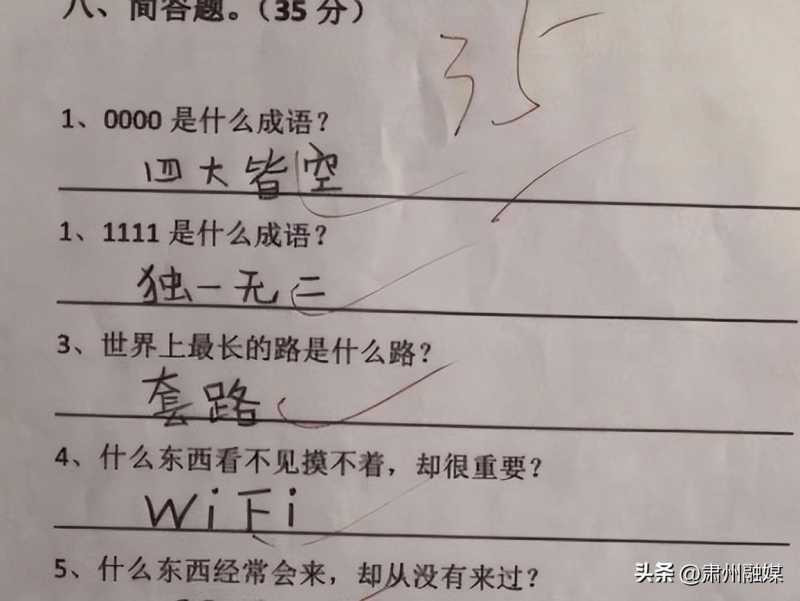 八、简答题。（35 分）
35
1、0000 是什么成语？
四大皆空
1、1111 是什么成语？
独一无二
3、世界上最长的路是什么路？
套路
4、什么东西看不见摸不着，却很重要？
WiFi
5、什么东西经常会来，却从没有来过？
头条 @肃州融媒